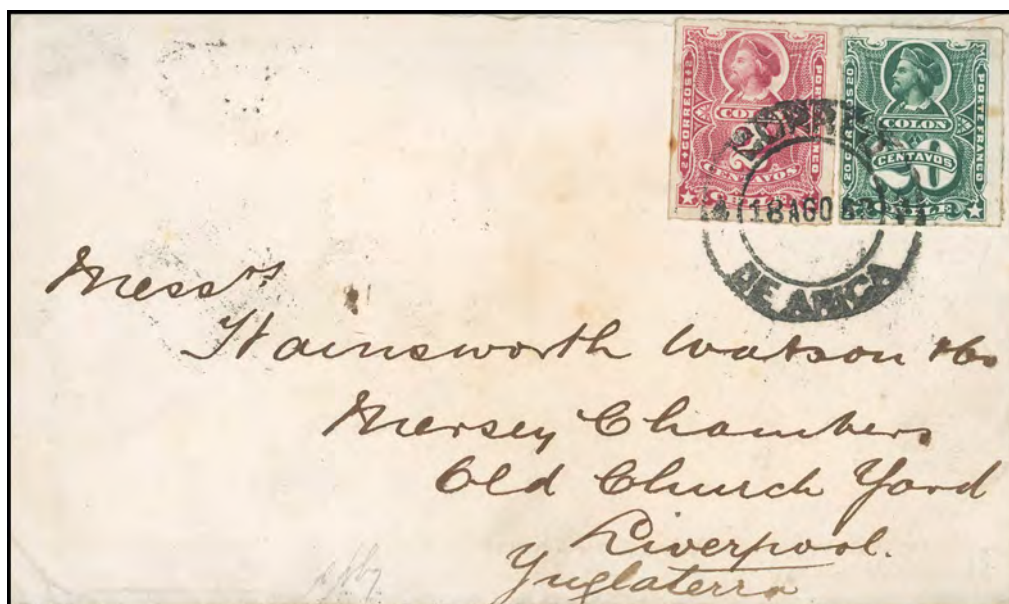 2 + CORREOS + 2
PORTE FRANCO
COLON
2
CENTAVOS
CHILE
20 CORREOS 20
PORTE FRANCO
COLON
20
CENTAVOS
CHILE
18 AGO
DE ARICA
Messrs
Hainsworth Watson & Co
Mersey Chambers
Old Church Yard
Liverpool.
Ynglaterra